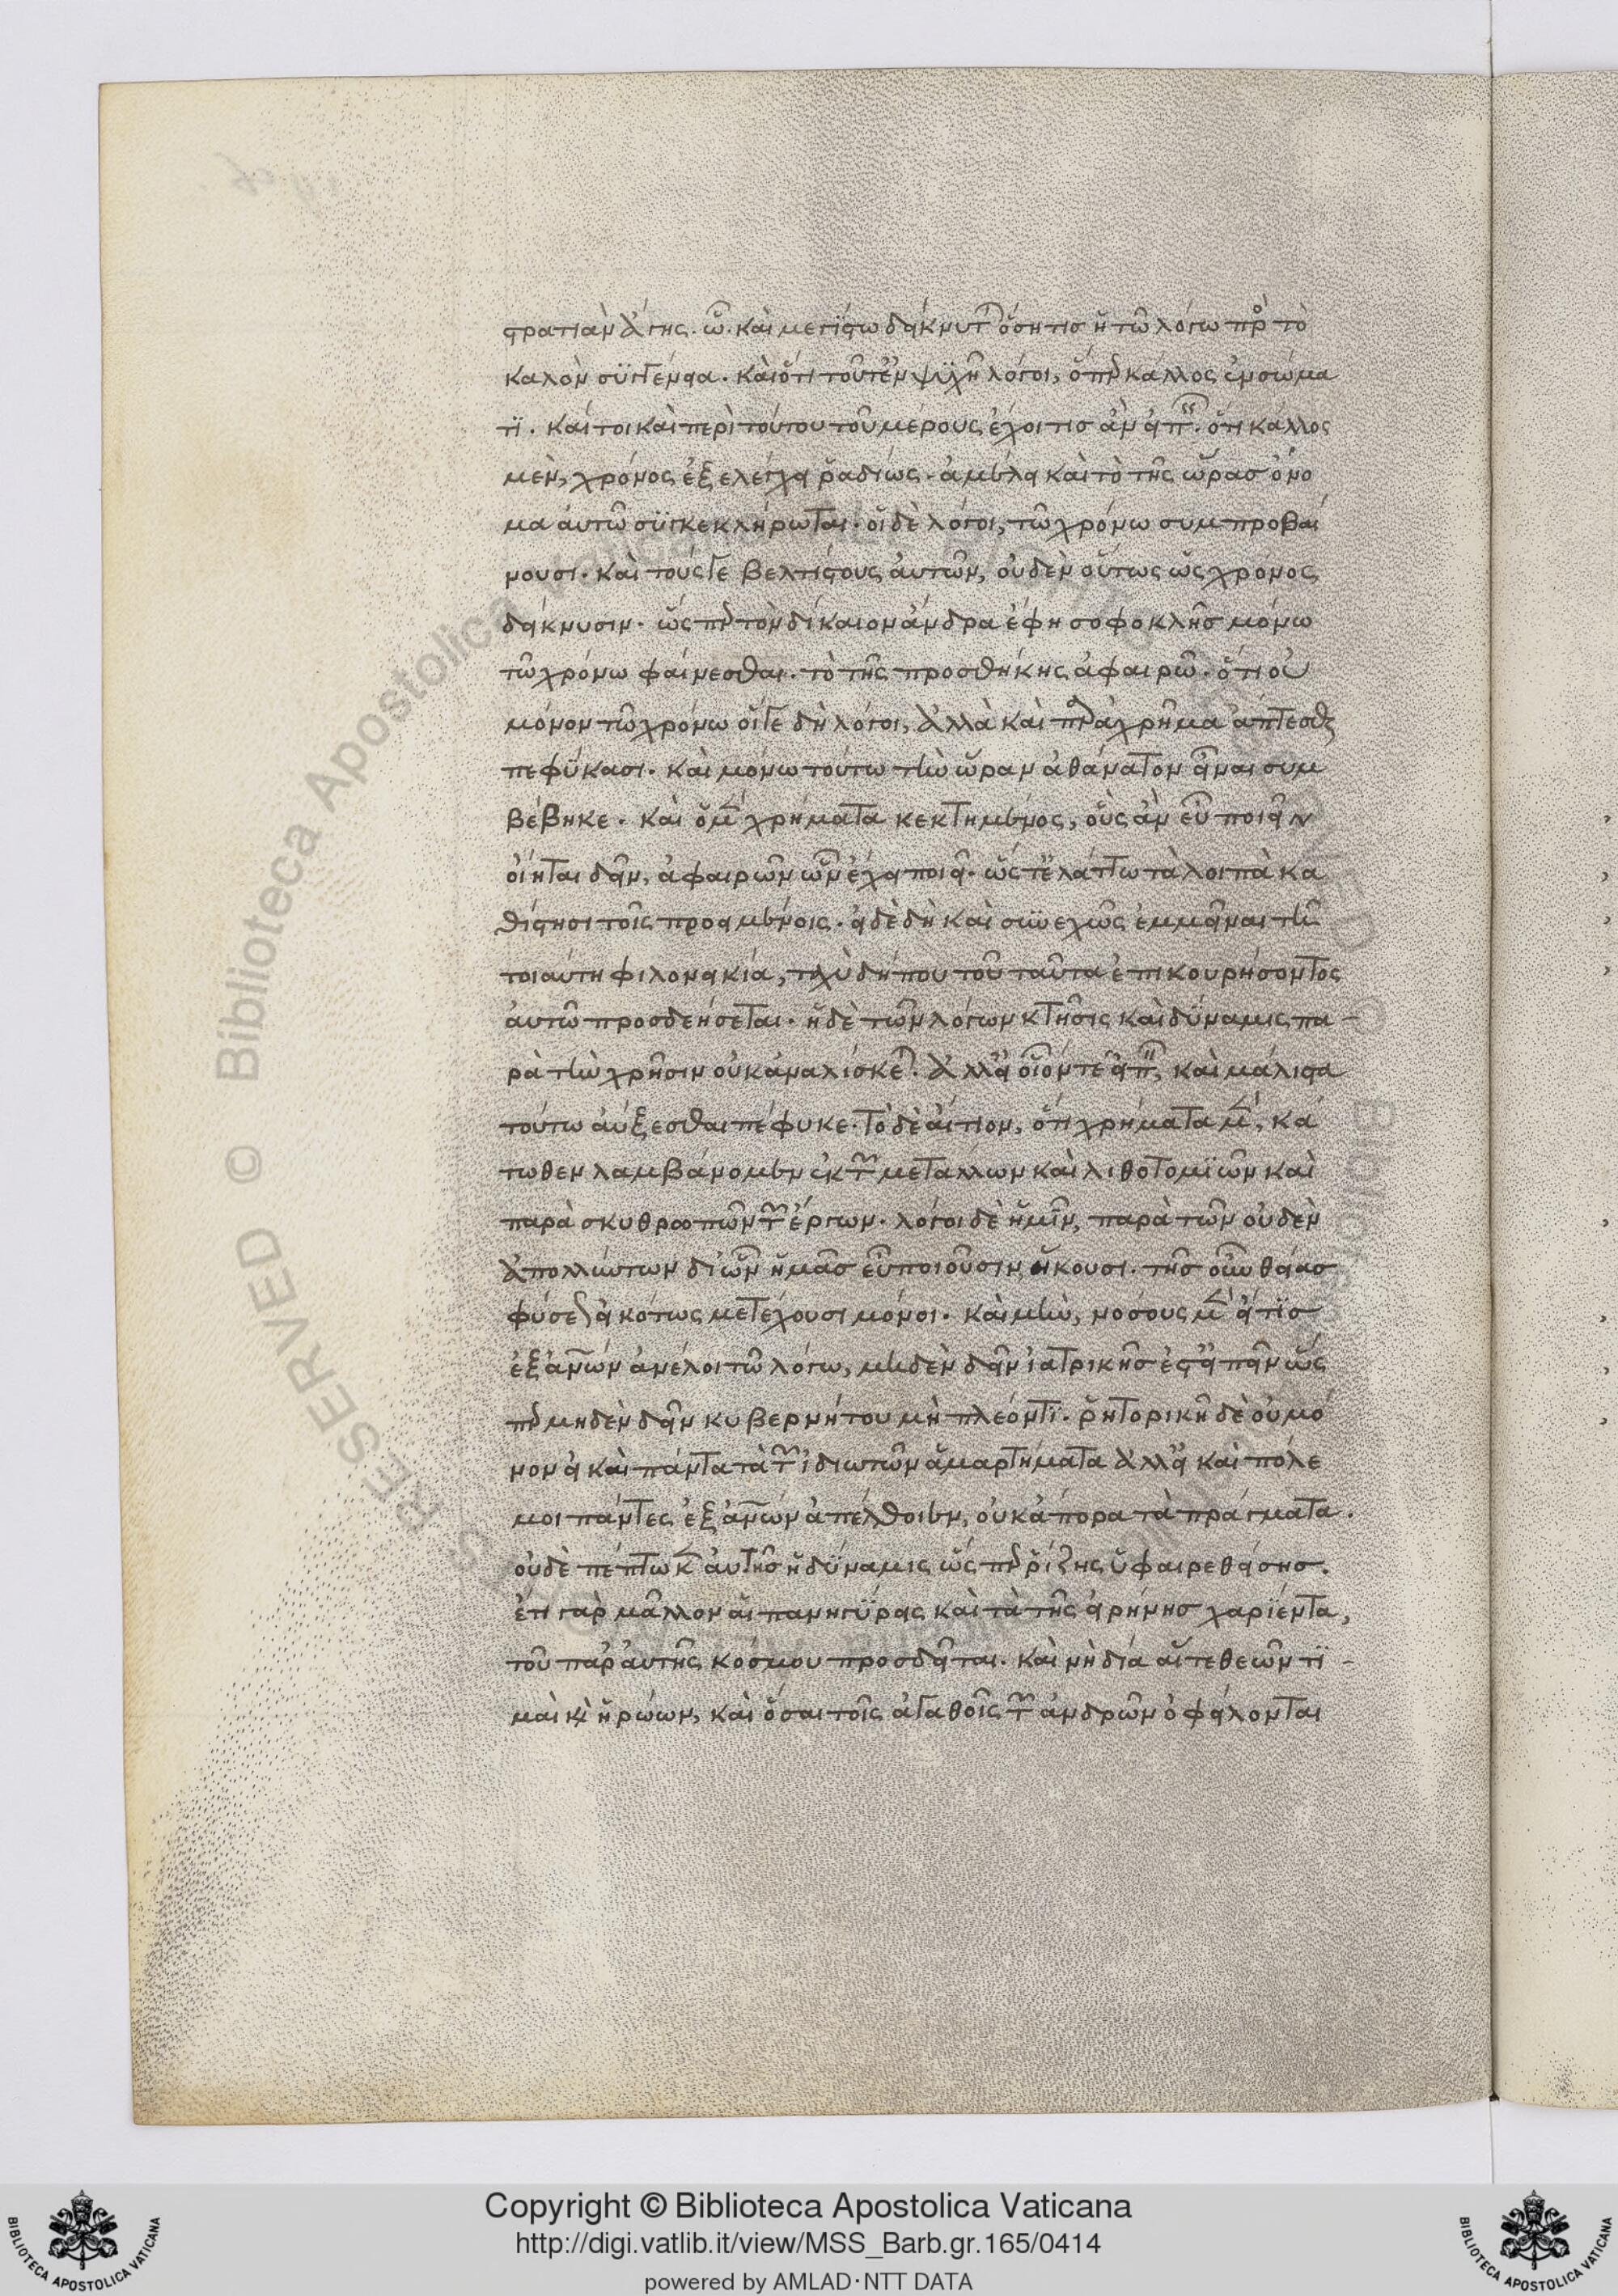 στρατιὰν ἄγης. ὦ. καὶ μεγίστω δείκνυται ὅση τισ ἡ τῶ λόγω πρὸς τὸ
καλὸν συγγένεια. καὶ ὅτι τοῦτ' ἐν ψυχῆ λόγοι, ὅπερ κάλλος ἐν σώμα
τι. καίτοι καὶ περὶ τούτου τοῦ μέρους ἔχοι τισ ἂν εἰπεῖν. ὅτι κάλλος
μὲν, χρόνος ἐξελέγχει ῥαδίως. ἀμέλει καὶ τὸ τῆς ὥρασ ὄνο
μα αὐτῶ συγκεκλήρωται. οἱ δὲ λόγοι, τῶ χρόνω συμπροβαί
νουσι. καὶ τούς γε βελτίστους αὐτῶν, οὐδὲν οὕτως ὡς χρόνος
δείκνυσιν. ὥσπερ τὸν δίκαιον ἄνδρα ἔφη σοφοκλῆσ μόνω
τῶ χρόνω φαίνεσθαι. τὸ τῆς προσθήκης ἀφαιρῶ. ὅτι οὐ
μόνον τῶ χρόνω οἵγε δὴ λόγοι, ἀλλὰ καὶ παραχρῆμα ἅπτεσθαι
πεφύκασι. καὶ μόνω τούτω τὴν ὥραν ἀθάνατον εἶναι συμ
βέβηκε. καὶ ὁ μὲν χρήματα κεκτημένος, οὓς ἂν εὖ ποιεῖν
οἴηται δεῖν, ἀφαιρῶν ὧν ἔχει ποιεῖ. ὥστ' ἐλάττω τὰ λοιπὰ κα
θίστησι τοῖς προειμένοις. εἰ δὲ δὴ καὶ συνεχῶς ἐμμεῖναι τῆ
τοιαύτη φιλονεικία, ταχὺ δήπου τοῦ ταῦτα ἐπικουρήσοντος
αὐτῶ προσδεήσεται. ἡ δὲ τῶν λόγων κτῆσις καὶ δύναμις πα-
ρὰ τὴν χρῆσιν οὐκ ἀναλίσκεται. ἀλλ' εἰ οἷόν τε εἰπεῖν, καὶ μάλιστα
τούτω αὔξεσθαι πέφυκε. τὸ δὲ αἴτιον, ὅτι χρήματα μὲν, κά
τωθεν λαμβάνομεν ἐκ τῶν μετάλλων καὶ λιθοτομιῶν καὶ
παρὰ σκυθρωπῶν τῶν ἔργων. λόγοι δὲ ἡμῖν, παρὰ τῶν οὐδὲν
ἀπολλύντων δι' ὧν ἡμᾶσ εὖ ποιοῦσιν, ἥκουσι. τῆσ οὖν θείασ
φύσεως εἰκότως μετέχουσι μόνοι. καὶ μὴν, νόσους μὲν εἴ τισ
ἐξ ἀνθρώπων ἀνέλοι τῶ λόγω, μηδὲν δεῖν ἰατρικῆσ ἔστ' εἰπεῖν ὥς
περ μηδὲν δεῖν κυβερνήτου μὴ πλέοντι. ῥητορικῆ δὲ οὐ μό
νον εἰ καὶ πάντα τὰ τῶν ἰδιωτῶν ἁμαρτήματα ἀλλ' εἰ καὶ πόλε
μοι πάντες ἐξ ἀνθρώπων ἀπέλθοιεν, οὐκ ἄπορα τὰ πράγματα.
οὐδὲ πέπτωκεν αὐτῆσ ἡ δύναμις ὥσπερ ῥίζης ὑφαιρεθείσησ.
ἔτι γὰρ μᾶλλον αἱ πανηγύρεις καὶ τὰ τῆς εἰρήνησ χαρίεντα,
τοῦ παρ' αὐτῆς κόσμου προσδεῖται. καὶ νὴ δία αἵ τε θεῶν τι-
μαὶ καὶ ἡρώων, καὶ ὅσαι τοῖς ἀγαθοῖς τῶν ἀνδρῶν ὀφείλονται
Copyright © Biblioteca Apostolica Vaticana
http://digi.vatlib.it/view/MSS_Barb.gr.165/0414
powered by AMLAD·NTT DATA
BIBLIOTECA APOSTOLICA VATICANA
BIBLIOTECA APOSTOLICA VATICANA